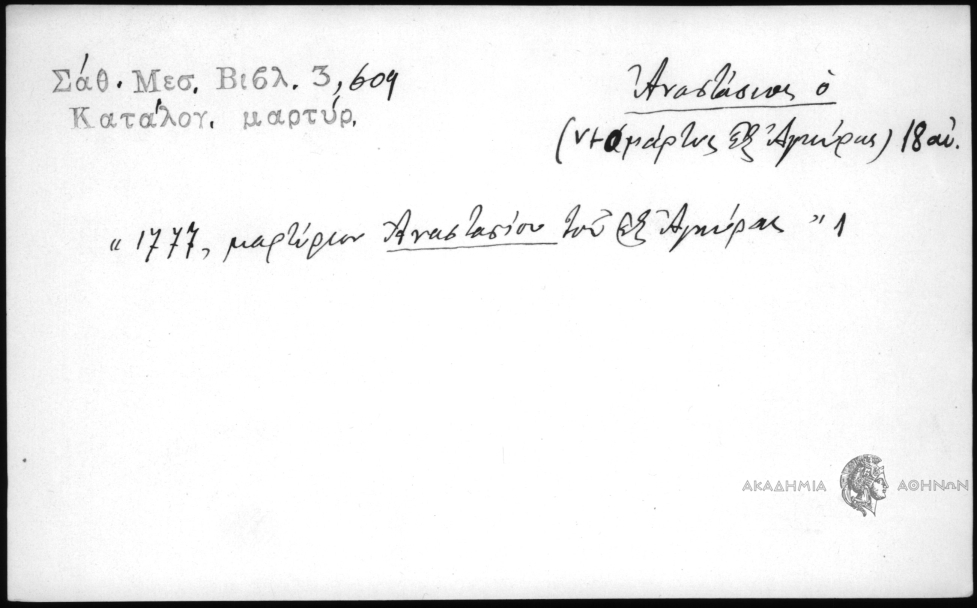 Σάθ. Μεσ. Βιβλ. 3, 609
Καταλογ. μαρτύρ.
Ἀναστάσιος ὁ
(νεομάρτυς ἐξ Ἀγκύρας) 18 αἰ.
« 1777, μαρτύριον Ἀναστασίου τοῦ ἐξ Ἀγκύρας »
ΑΚΑΔΗΜΙΑ ΑΘΗΝΩΝ